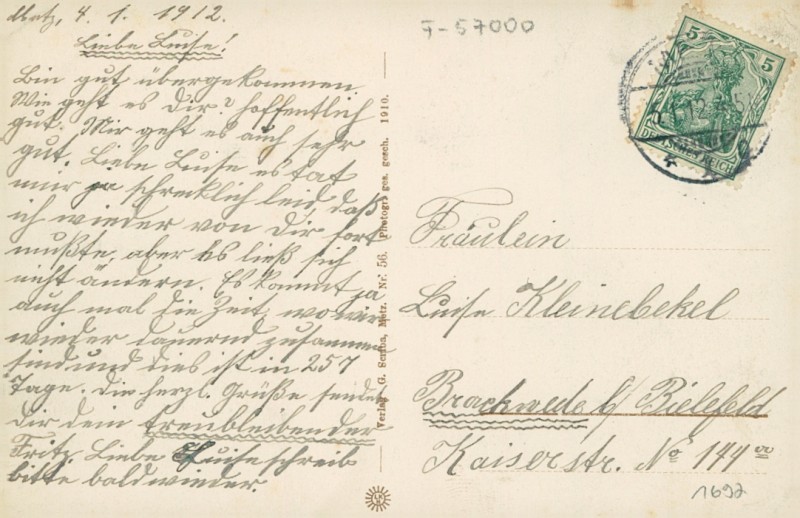 Metz, 4. 1. 1912.
Liebe Luise!
Bin gut übergekommen.
Wie geht es Dir? hoffentlich
gut. Mir geht es auch sehr
gut. Liebe Luise es tat
mir ja schrecklich leid, daß
ich wieder von Dir fort
mußte, aber es ließ sich
nicht ändern. Es kommt ja
auch mal die Zeit, wo wir
wieder dauernd zusammen
sind und dies ist in 257
Tage. Die herzl. Grüße sendet
dir dein treubleibender
Fritz. Liebe Luise schreib
bitte bald wieder.
Verlag G. Scriba, Metz. Nr. 56. Photogr. ges. gesch. 1910.
F-57000
5 5
DEUTSCHES REICH
Fräulein
Luise Kleinebekel
Brackwede b/ Bielefeld
Kaiserstr. No 144
1692